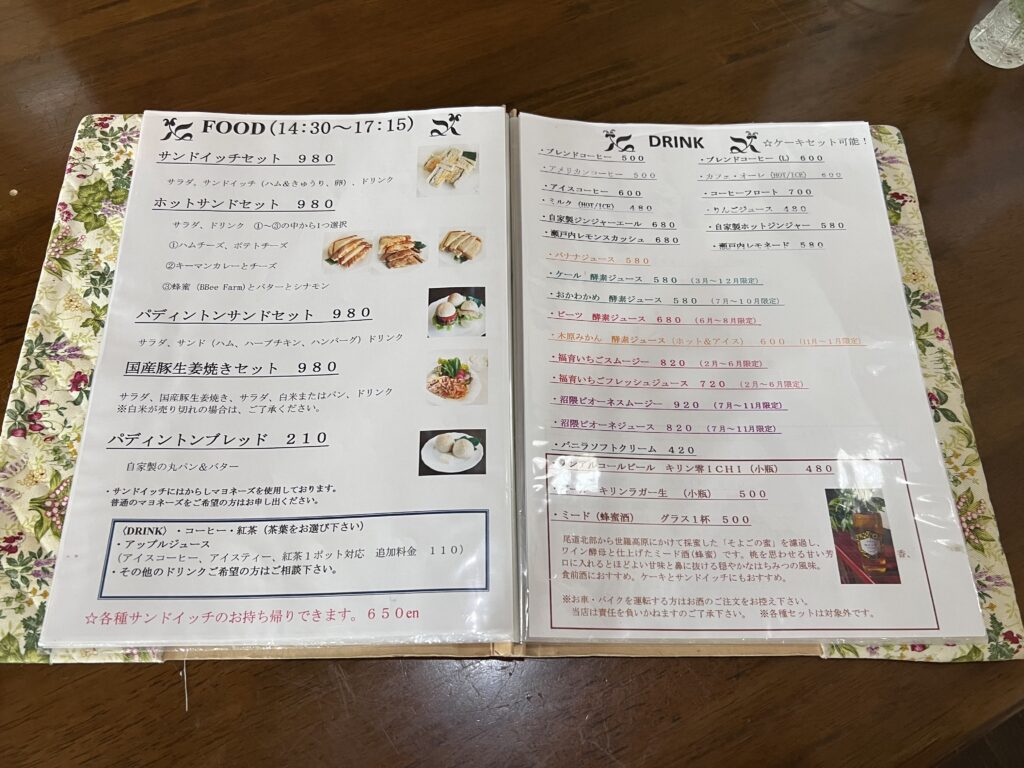 FOOD(14:30～17:15)
サンドイッチセット 980
サラダ、サンドイッチ（ハム&きゅうり、卵）、ドリンク
ホットサンドセット 980
サラダ、ドリンク ①～③の中から1つ選択
①ハムチーズ、ポテトチーズ
②キーマンカレーとチーズ
③蜂蜜（BBee Farm)とバターとシナモン
パディントンサンドセット 980
サラダ、サンド（ハム、ハーブチキン、ハンバーグ）ドリンク
国産豚生姜焼きセット 980
サラダ、国産豚生姜焼き、サラダ、白米またはパン、ドリンク
※白米が売り切れの場合は、ご了承ください。
パディントンブレッド 210
自家製の丸パン&バター
・サンドイッチにはからしマヨネーズを使用しております。
普通のマヨネーズをご希望の方はお申し出ください。
〈DRINK〉・コーヒー・紅茶（茶葉をお選び下さい）
・アップルジュース
（アイスコーヒー、アイスティー、紅茶1ポット対応 追加料金 110）
・その他のドリンクご希望の方はご相談下さい。
☆各種サンドイッチのお持ち帰りできます。650en
DRINK
☆ケーキセット可能！
・ブレンドコーヒー 500
・ブレンドコーヒー（L） 600
・アメリカンコーヒー 500
・カフェ・オーレ（HOT/ICE） 600
・アイスコーヒー 600
・コーヒーフロート 700
・ミルク（HOT/ICE） 480
・りんごジュース 480
・自家製ジンジャーエール 680
・自家製ホットジンジャー 580
・瀬戸内レモンスカッシュ 680
・瀬戸内レモネード 580
・バナナジュース 580
・ケール 酵素ジュース 580 （3月～12月限定）
・おかわかめ 酵素ジュース 580 （7月～10月限定）
・ビーツ 酵素ジュース 680 （6月～8月限定）
・木原みかん 酵素ジュース（ホット&アイス） 600 （11月～1月限定）
・福育いちごスムージー 820 （2月～6月限定）
・福育いちごフレッシュジュース 720 （2月～6月限定）
・沼隈ピオーネスムージー 920 （7月～11月限定）
・沼隈ピオーネジュース 820 （7月～11月限定）
・バニラソフトクリーム 420
ンアルコールビール キリン零ICHI（小瓶） 480
キリンラガー生 （小瓶） 500
・ミード（蜂蜜酒） グラス1杯 500
尾道北部から世羅高原にかけて採蜜した「そよごの蜜」を濾過し、
ワイン酵母と仕上げたミード酒(蜂蜜）です。桃を思わせる甘い芳香、
口に入れるとほどよい甘味と鼻に抜ける穏やかなはちみつの風味。
食前酒におすすめ。ケーキとサンドイッチにもおすすめ。
※お車・バイクを運転する方はお酒のご注文をお控え下さい。
当店は責任を負いかねますのご了承下さい。 ※各種セットは対象外です。